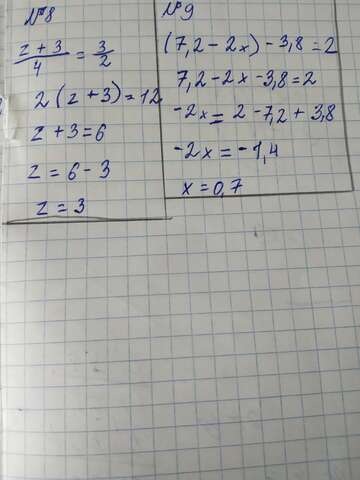 №8
(z + 3)/4 = 3/2
2(z + 3) = 12
z + 3 = 6
z = 6 - 3
z = 3
№9
(7,2 - 2x) - 3,8 = 2
7,2 - 2x - 3,8 = 2
-2x = 2 - 7,2 + 3,8
-2x = -1,4
x = 0,7